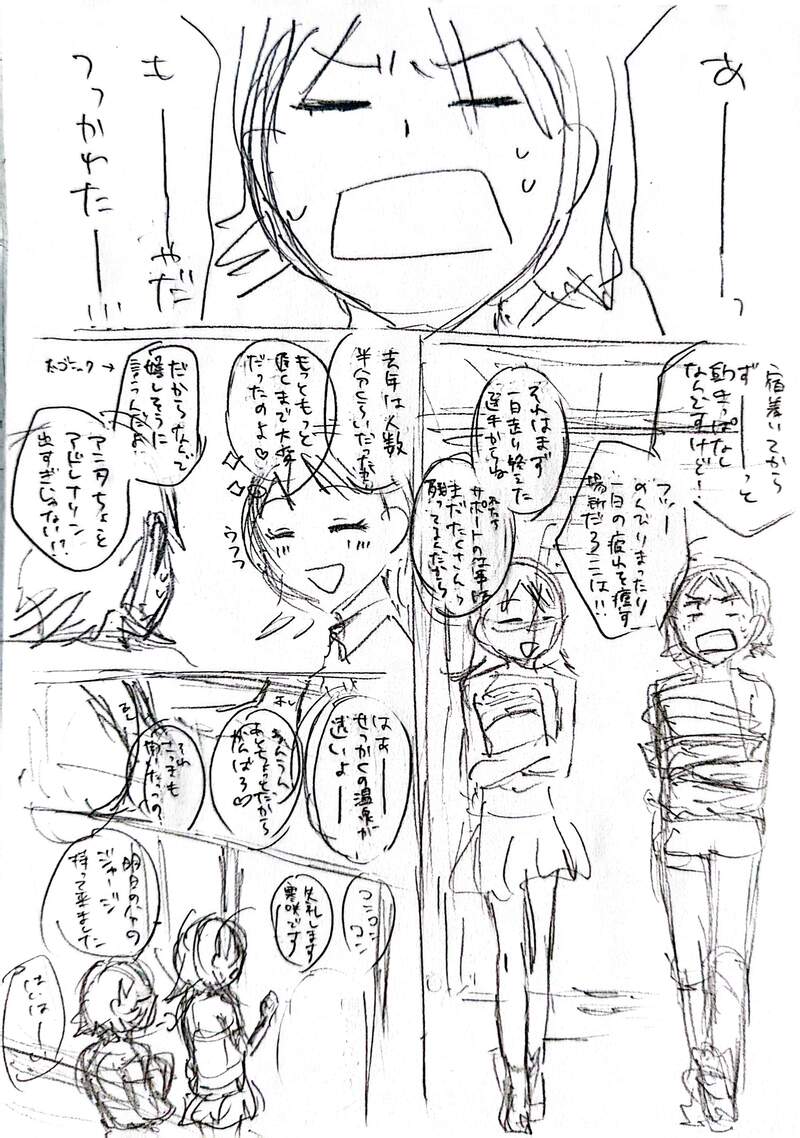 あーーーっ
もーーーやだ
つっかれたーー!!!
宿着いてから
ずーーーっと
動きっぱなし
なんですけど!
フツー
のんびりまったり
一日の疲れを癒す
場所だろココは!!
それはまず
一日走り終えた
選手からね
サポートの仕事は
まだたくさん
残ってるんだから
去年は人数
半分くらいだったから
もっともっと
遅くまで大変
だったのよ♡
ウフフ
だからなんで
嬉しそうに
言うんだよ
アニタちょっと
アドレナリン
出すぎじゃない!?
はあーー
せっかくの温泉が
遠いよーー
うんうん
あとちょっとだから
がんばろ♡
それ
さっきも
コンコン
コン
失礼します
寒咲です
明日の分の
ジャージ
持って来ました
はいはーい